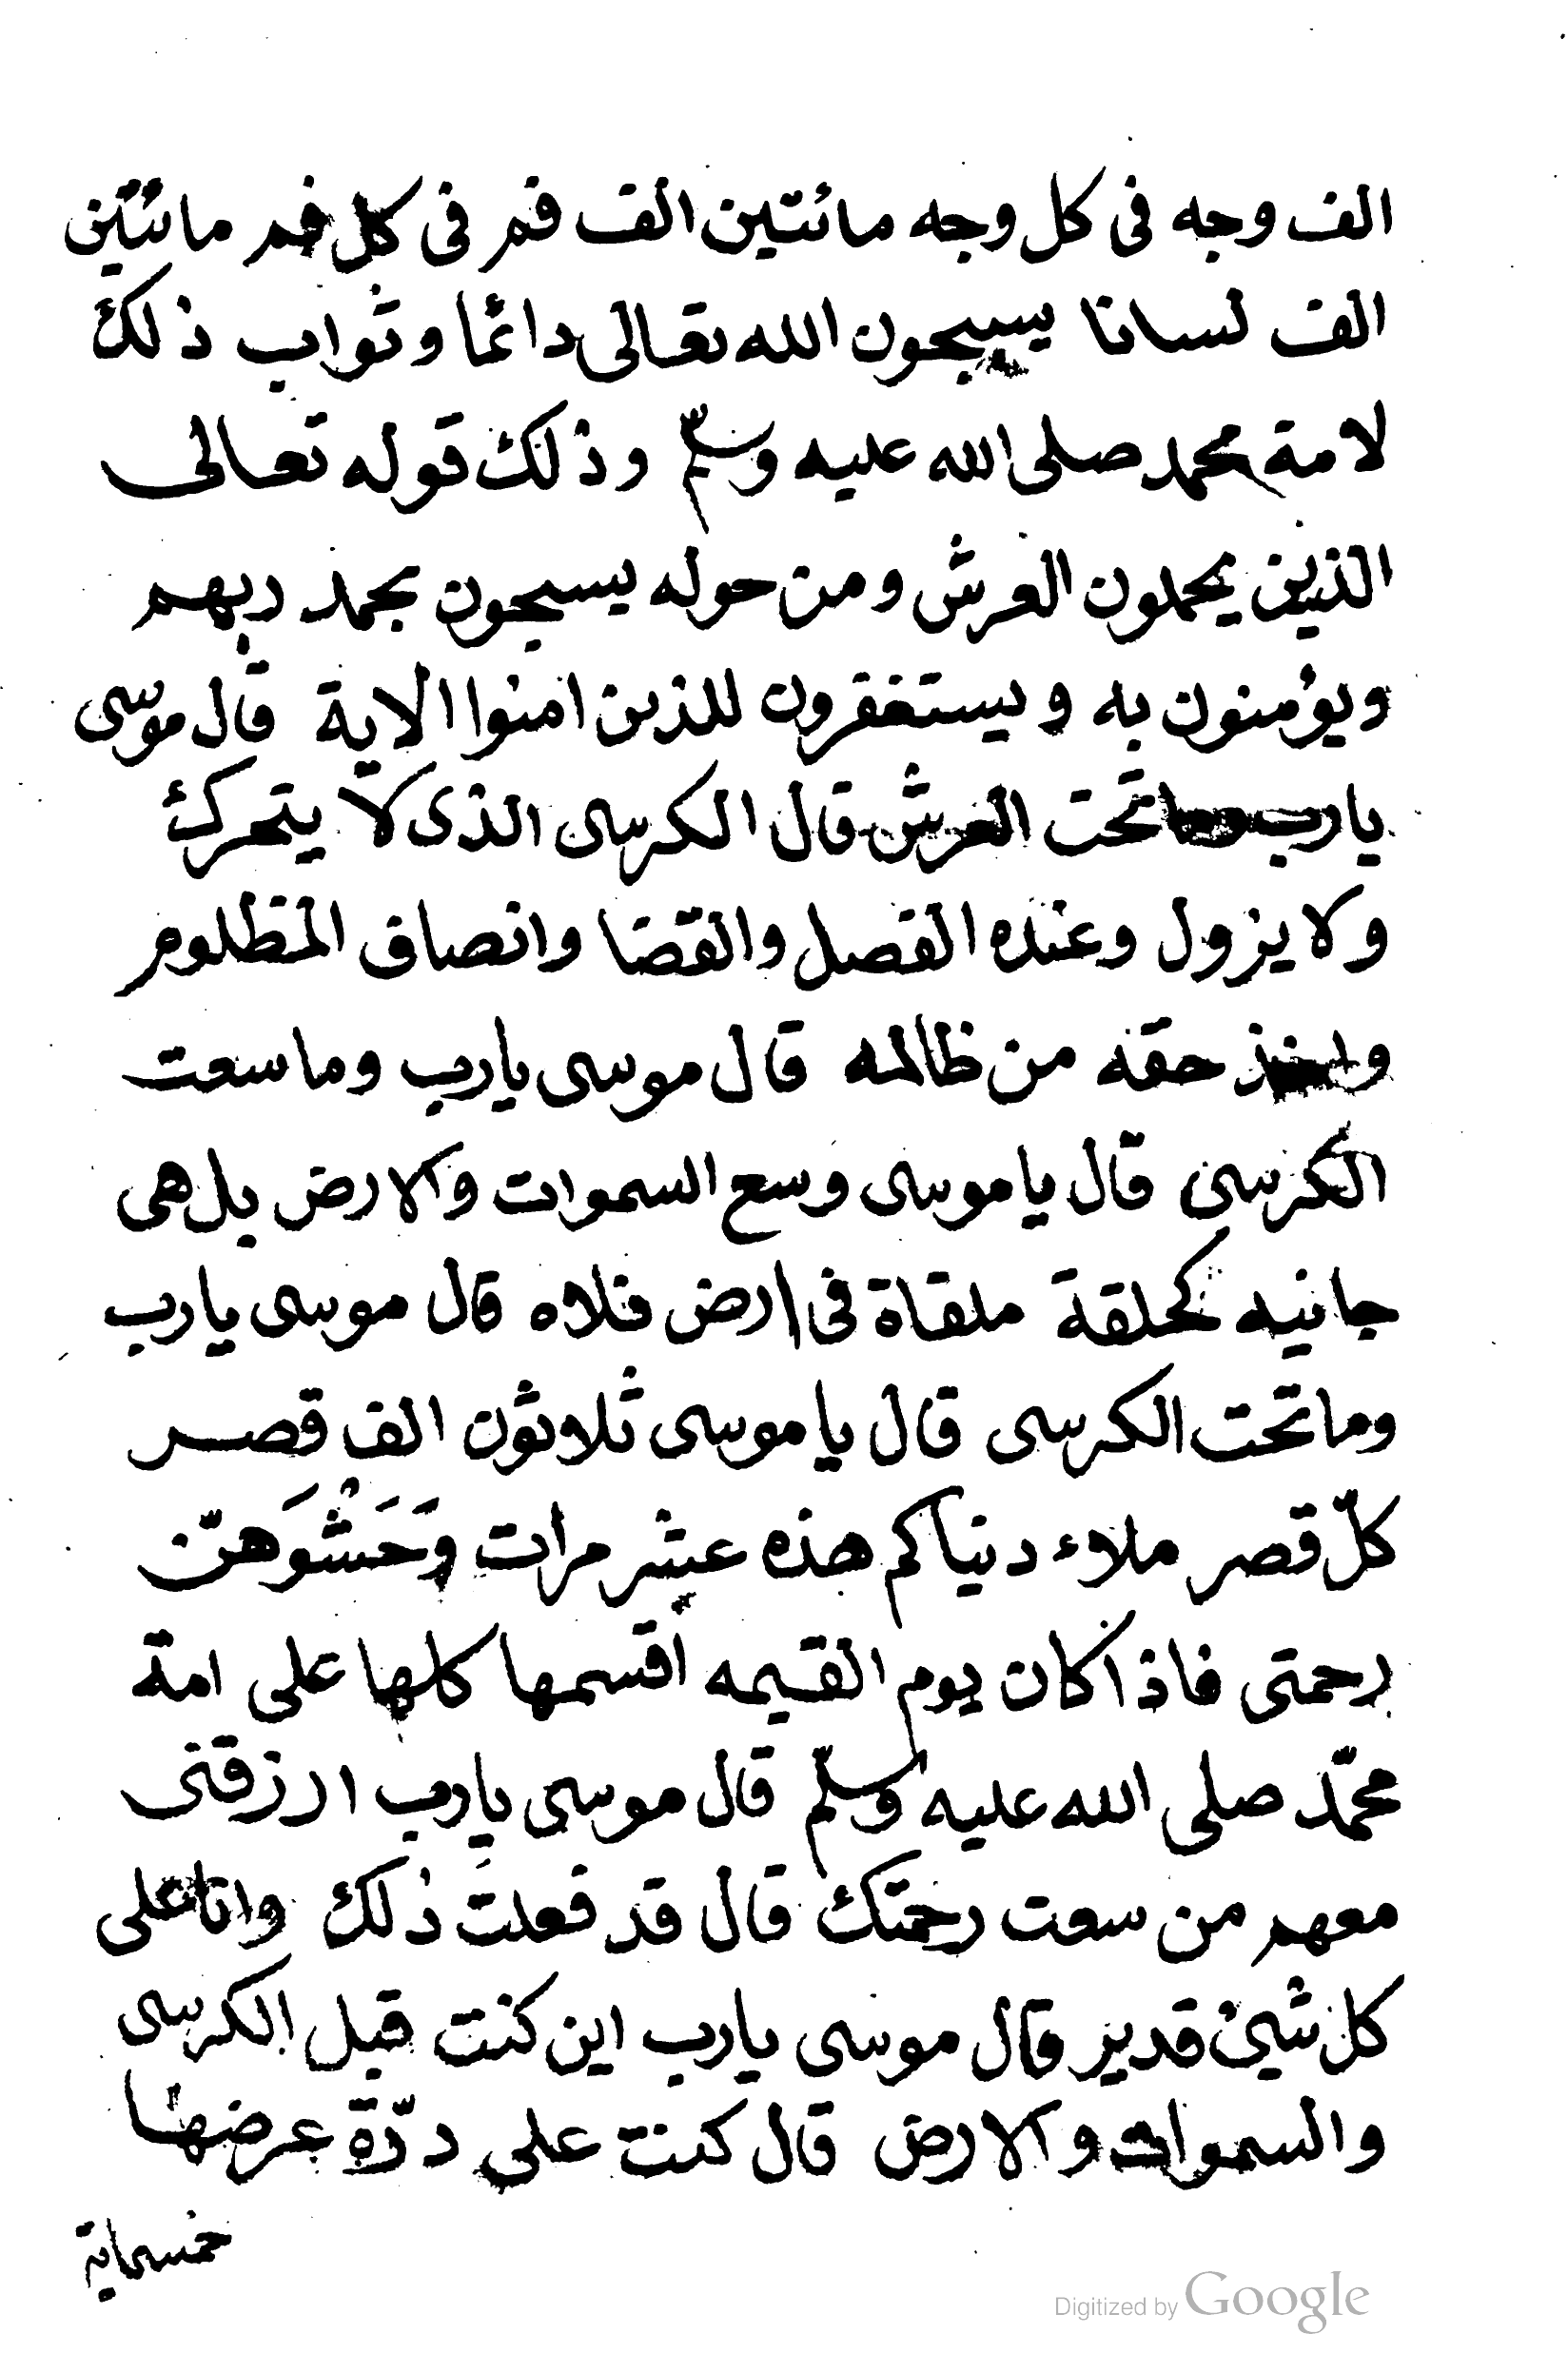 الف وجه فى كل وجه مائتين الف فم فى كل فم مائتين
الف لسانا يسبحون الله تعالى دائما وثواب ذلك
لامة محمد صلى الله عليه وسلم وذلك قوله تعالى
الذين يحملون العرش ومن حوله يسبحون بحمد ربهم
ويؤمنون به ويستغفرون للذين امنوا الاية قال موسى
يارب وما تحت العرش قال الكرسى الذى لا يتحرك
ولا يزول وعنده الفصل والقضا وانصاف المظلوم
واخذ حقه من ظالمه قال موسى يارب وما سعت
الكرسى قال يا موسى وسع السموات والارض بل هى
جانبه كحلقة ملقاة فى ارض فلاه قال موسى يارب
وما تحت الكرسى قال يا موسى ثلاثون الف قصر
كلّ قصر ملاء دنياكم هذه عشر مرات وَحَشْوَهنّ
رحمتى فاذا كان يوم القيمه اقسمها كلها على امة
محمّد صلى الله عليه وسلّم قال موسى يارب ارزقنى
معهم من سعت رحمتك قال قد فعلتَ ذلك وانا على
كل شئ قدير قال موسى يارب اين كنت قبل الكرسى
والسموات والارض قال كنت على درّة عرضها
خمسماية
Digitized by Google